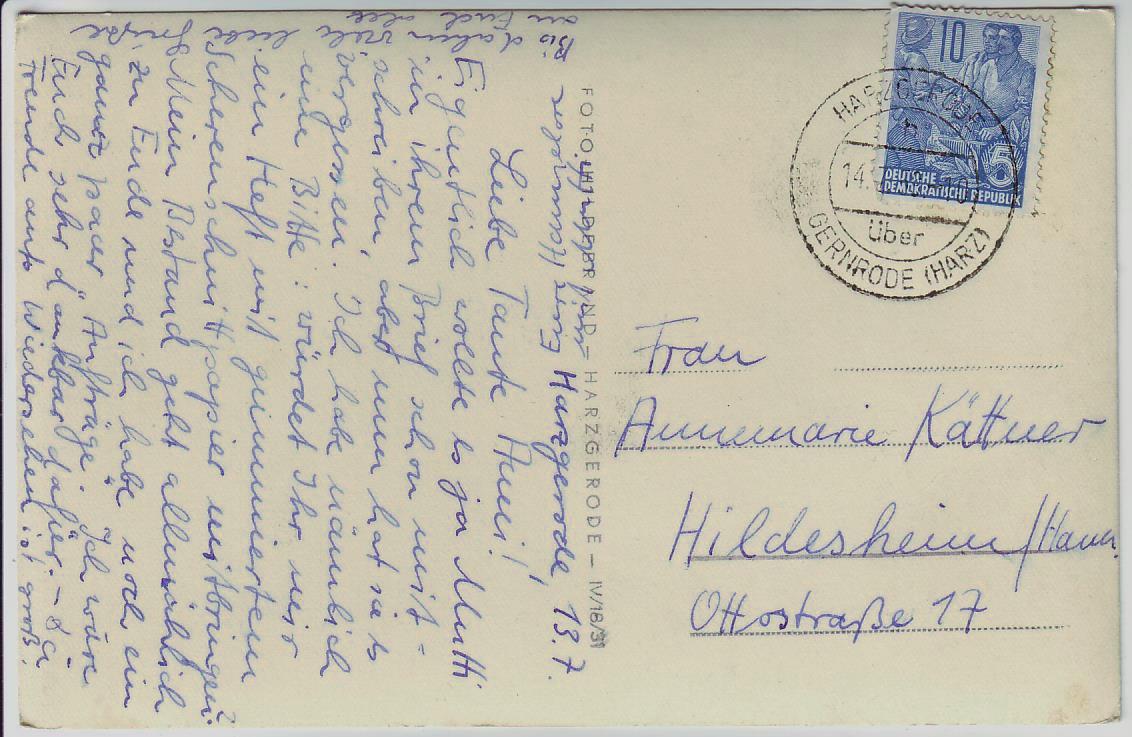 Harzgerode, 13.7.
Liebe Tante Anni!
Eigentlich wollte es ja Mutti
in ihrem Brief schon mit-
schreiben, aber nun hat sie es
vergessen. Ich habe nämlich
eine Bitte: würdet Ihr mir
ein Heft mit gummiertem
Scherenschnittpapier mitbringen?
Mein Bestand geht allmählich
zu Ende und ich habe noch ein
ganz paar Aufträge. Ich wäre
Euch sehr dankbar dafür. – Die
Freude aufs Wiedersehen ist groß.
Bis dahin viele liebe Grüße
an Euch alle
Eure
FOTO HILDEBRAND – HARZGERODE – IV/18/51
10
5
DEUTSCHE
DEMOKRATISCHE REPUBLIK
HARZGERODE
14.
über
GERNRODE (HARZ)
Frau
Annemarie Kättner
Hildesheim/Hann.
Ottostraße 17